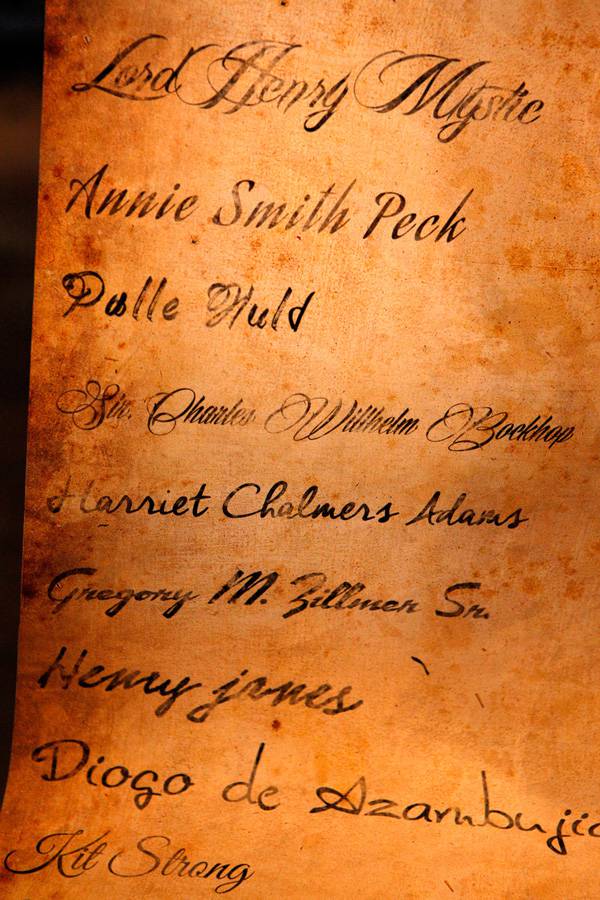 Lord Henry Mystic
Annie Smith Peck
Palle Huld
Sir. Charles Willhelm Bockhop
Harriet Chalmers Adams
Gregory M. Zillmer Sr.
Henry jones
Diogo de Azambujia
Kit Strong